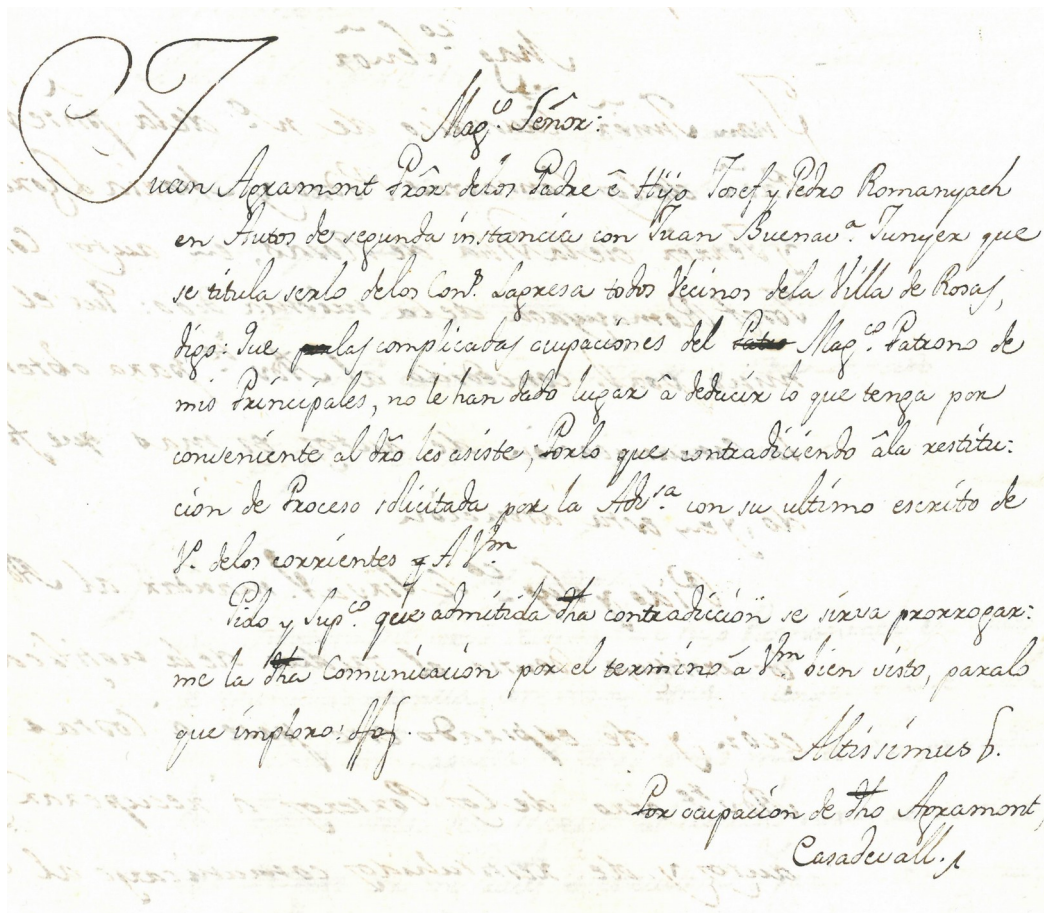 Mag.co Señor:
Juan Agramont Prôr delos Padre ê Hijo Josef y Pedro Romanyach
en Autos de segunda instancia con Juan Buenav.a Junyer que
se titula serlo delos Con.s Lagresa todos Vecinos dela Villa de Rosas,
digo: Que las complicadas ocupaciones del Mag.co Patrono de
mis Principales, no le han dado lugar â deducir lo que tenga por
conveniente al dr̃o les asiste; Porlo que contradiciendo âla restitu:
cion de Proceso solicitada por la Adv.sa con su ultimo escrito de
delos corrientes A Vm
Pido y Sup.co que admitida dha contradicciôn se sirva prorrogar:
me la dha Comunicación por el termino â Vm bien visto, paralo
que imploro:
Altissimus
Por ocupacion de dho Agramont,
Casadevall.